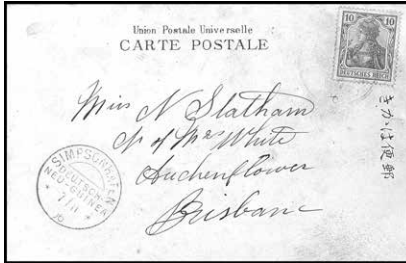 Union Postale Universelle
CARTE POSTALE
10 10
DEUTSCHES REICH
Miss N Statham
℅ Mrs White
Auchenflower
Brisbane
SIMPSONHAFEN
DEUTSCH-
NEU-GUINEA
7/11
きかは便郵